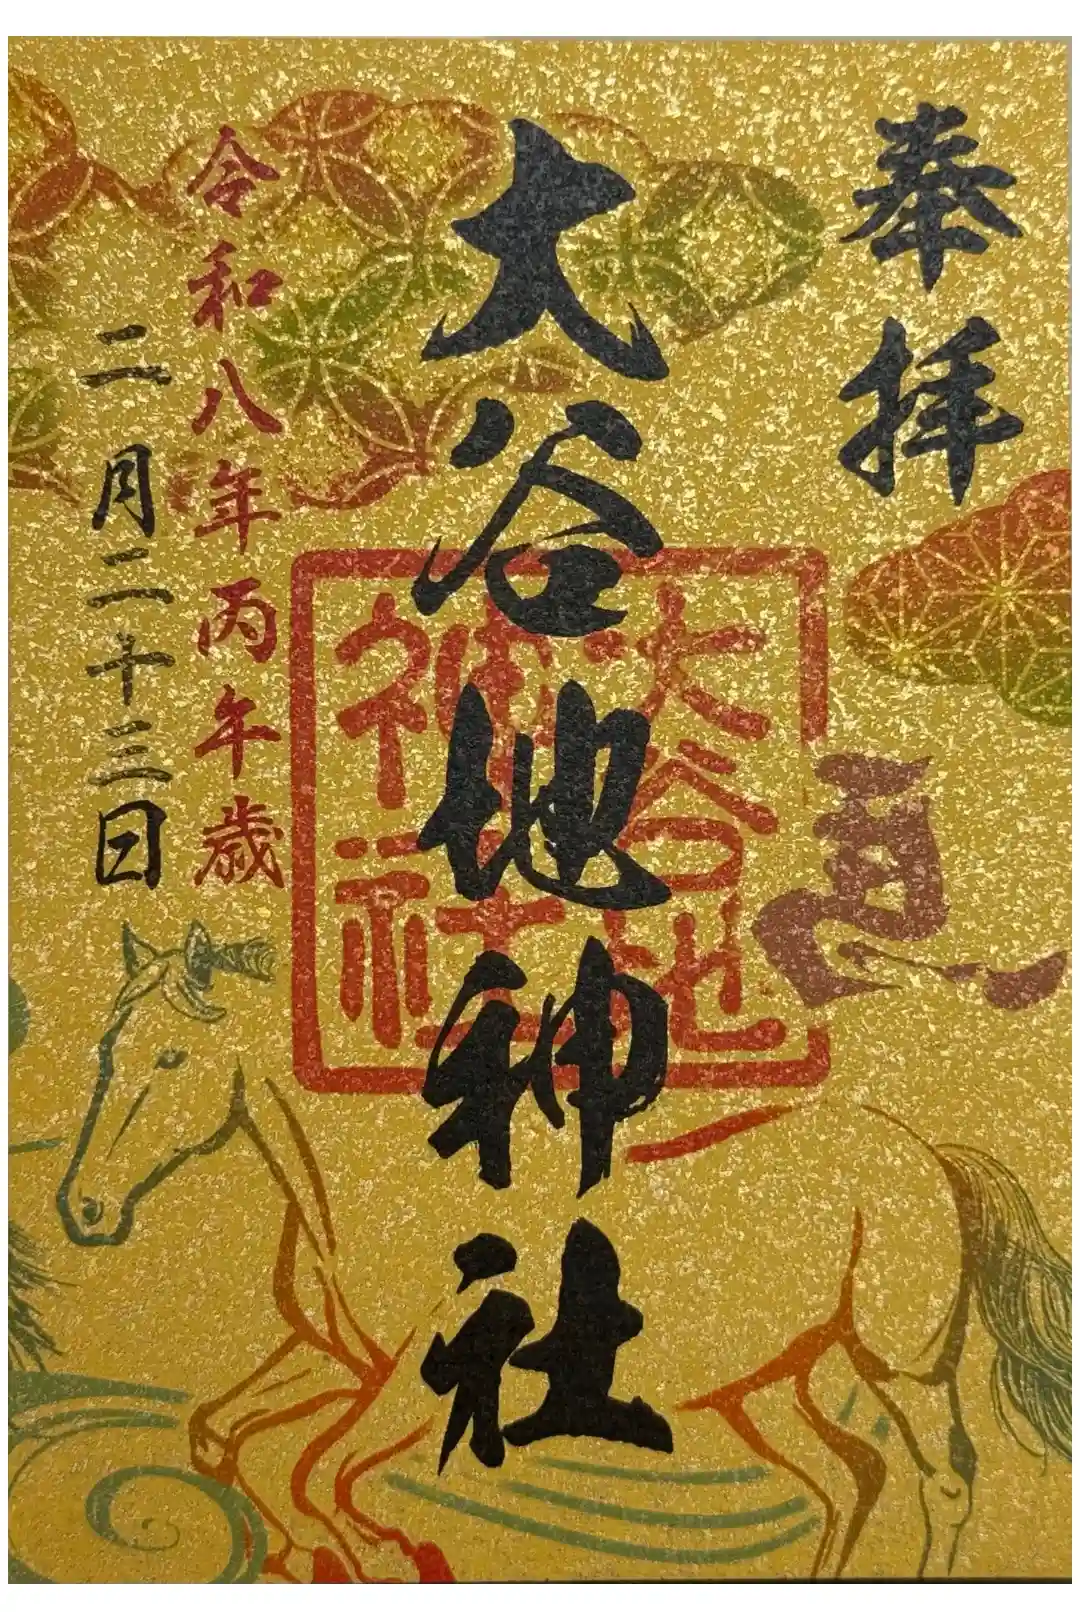 奉拝
大谷地神社
大谷地
神社
令和八年丙午歳
二月二十三日